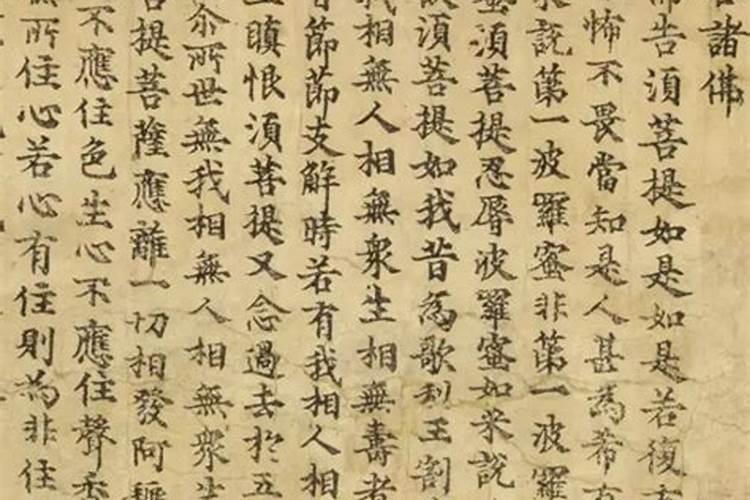 諸佛
佛告須菩提如是如是若復
怖不畏當知是人甚為希有
来說第一波羅蜜非第一波羅
蜜須菩提忍辱波羅蜜如来說
須菩提如我昔為歌利王割
我相無人相無衆生相無壽者
昔節節支解時若有我相人相
瞋恨須菩提又念過去於五
尒所世無我相無人相無衆生
菩提菩薩應離一切相發阿耨
不應住色生心不應住聲香
無所住心若心有住則為非住